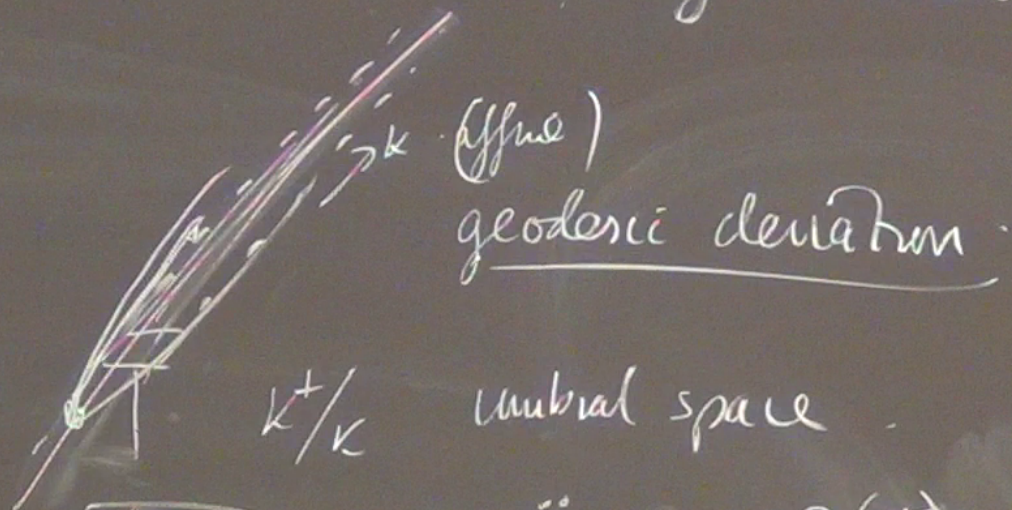 k (affine)
geodesic deviation.
k⊥/k umbral space.